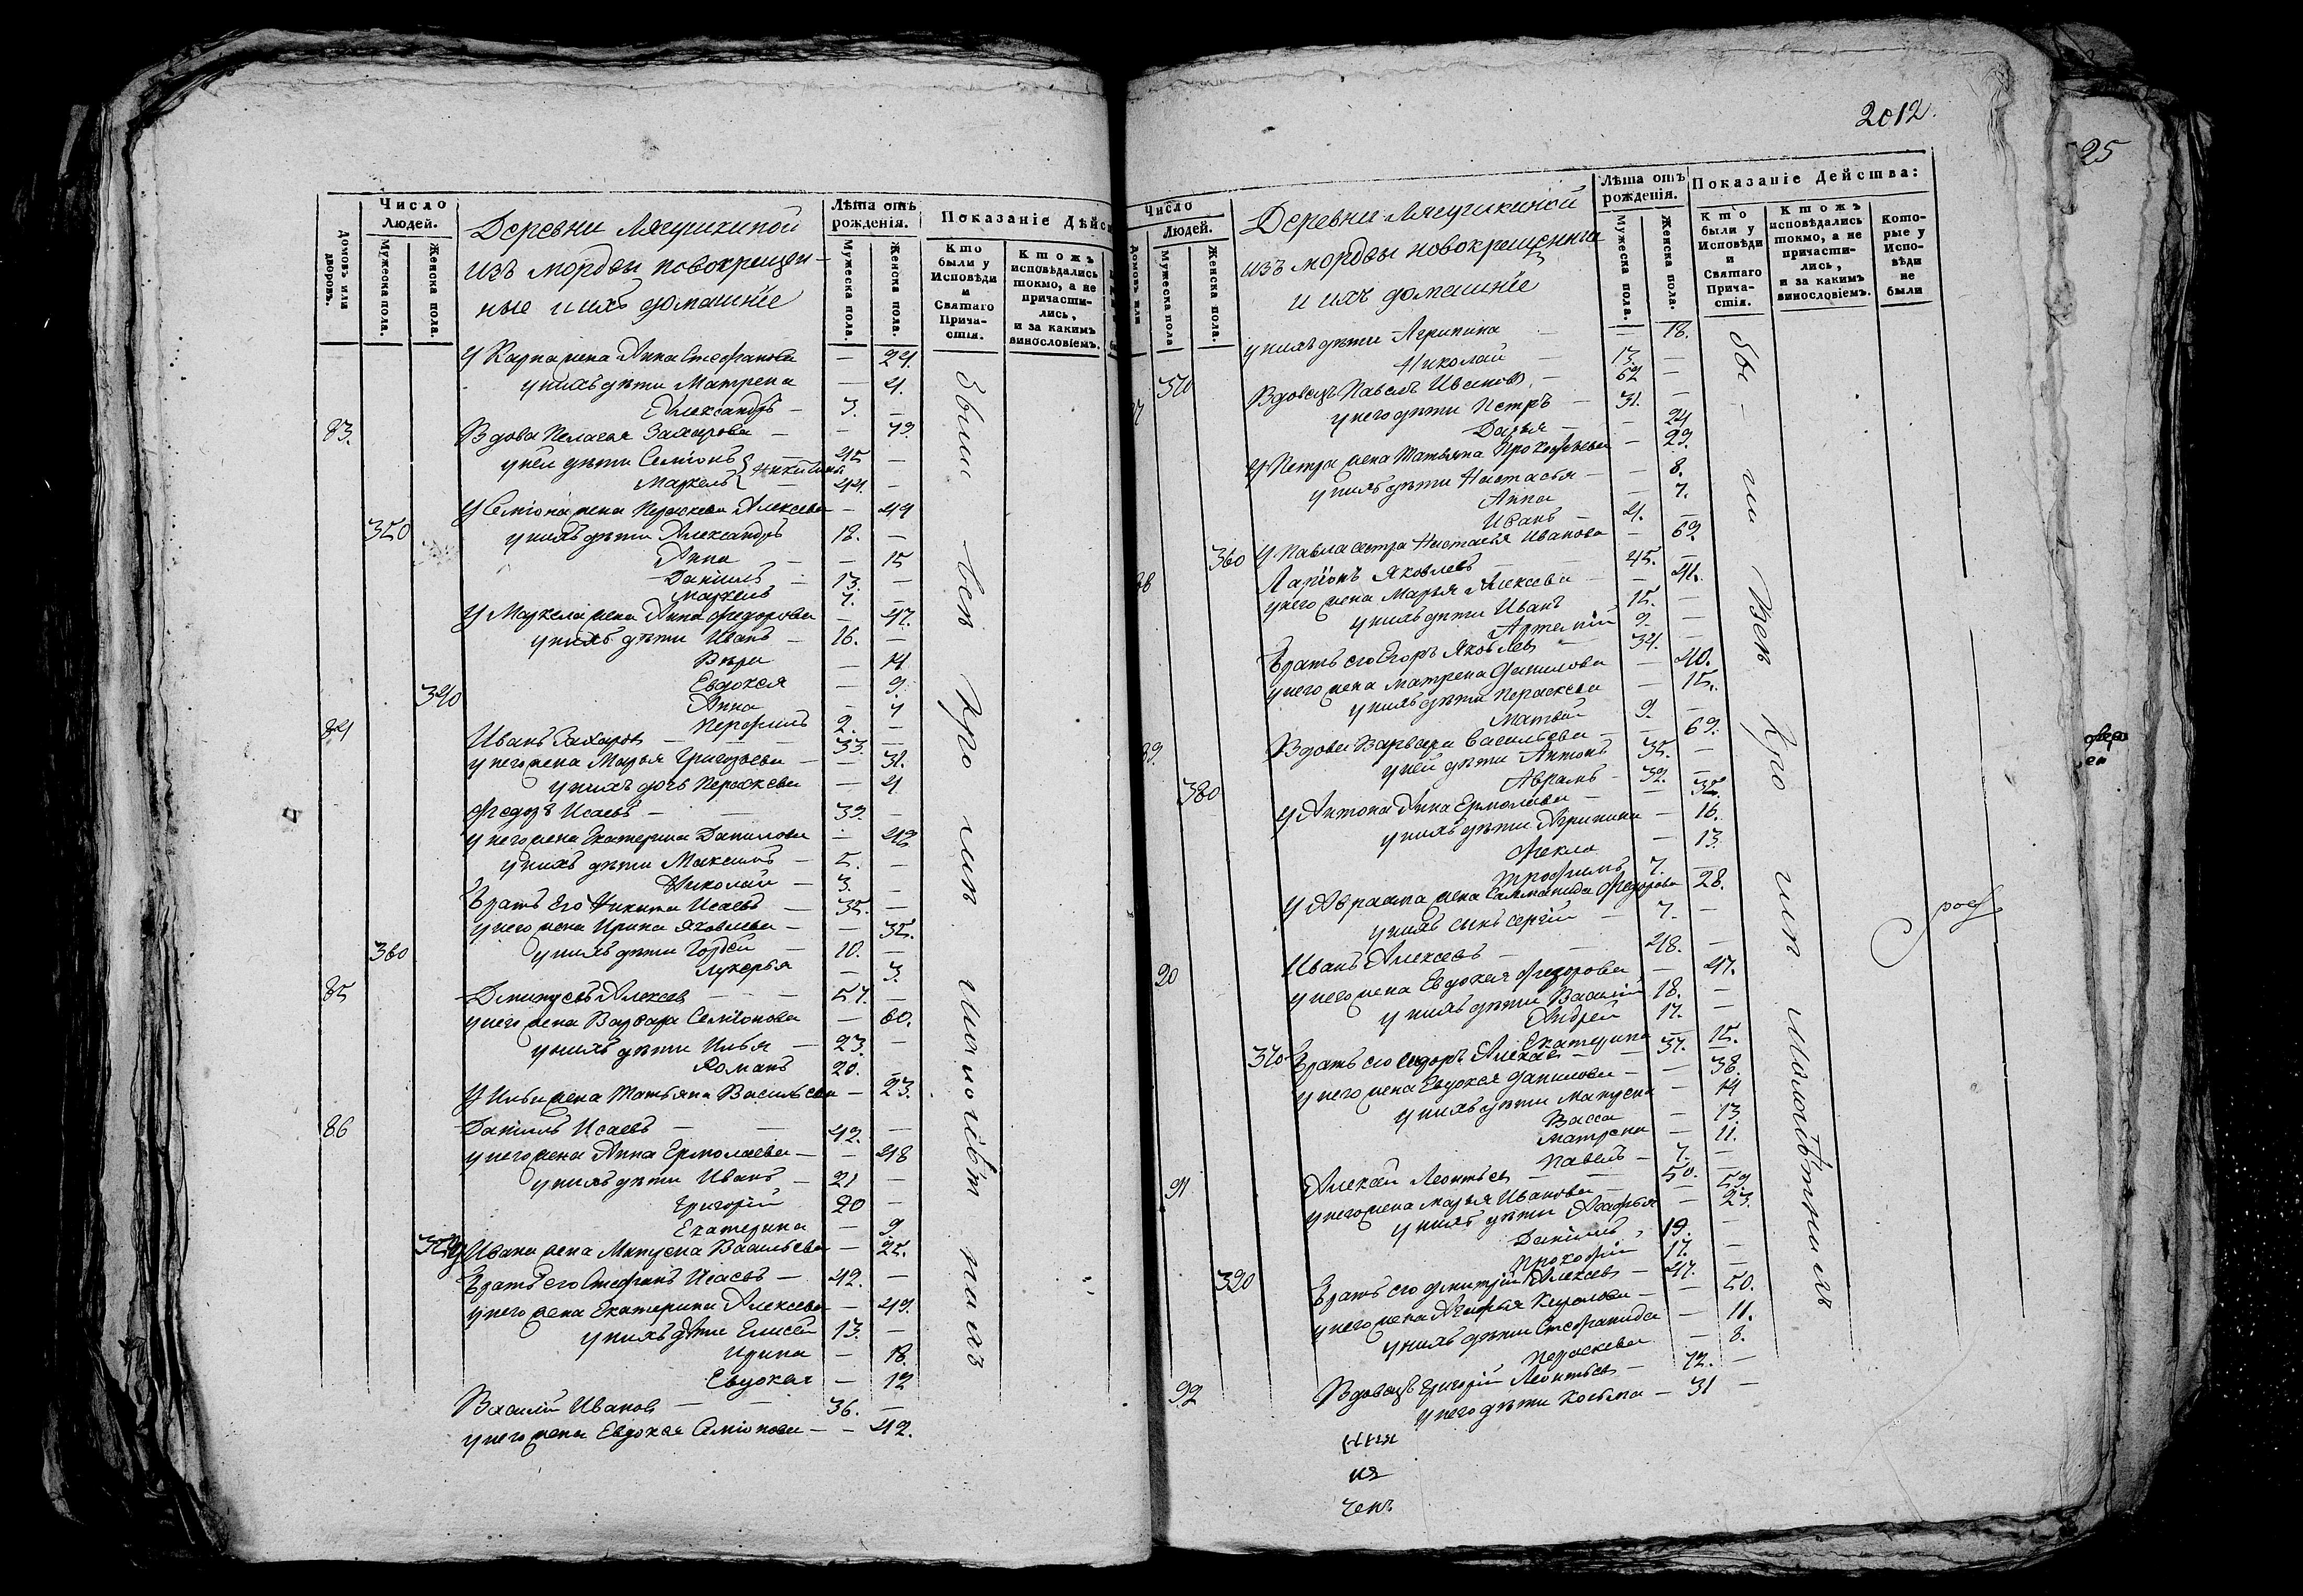 Число Людей.
Лѣта отъ рожденія.
Показаніе Дѣйс
Домовъ или дворовъ.
Мужеска пола.
Женска пола.
Деревни Лягушкиной
изъ мордвы новокрещен-
ные и ихъ домашніе
Мужеска пола.
Женска пола.
Кто были у Исповѣди и Святаго Прича-стія.
Ктожъ исповѣдались токмо, а не причасти-лись, и за какимъ винословіемъ.
У Карпа жена Анна Стефанова — 24.
у нихъ дѣти Матрена — 4.
Александръ — 3. —
83. Вдова Пелагея Захарова — — 73.
у ней дѣти Семіонъ Никитины 45 —
Маркелъ — 44. —
У Семіона жена Парасковья Алексева — 49
350 у нихъ дѣти Александръ 18. —
Анна — — 15
Даніилъ — 13. —
Маркелъ 7. —
У Маркела жена Анна Федорова — 47.
у нихъ дѣти Иванъ — 16. —
Вѣра — 14
Евдокея — 9.
340 Анна — 7
Перфилъ 2. —
84 Иванъ Захаровъ — 33. —
у него жена Марья Григорьева — — 31.
у нихъ дочь Пераскева — 4
Федоръ Исаевъ — 39. —
у него жена Екатерина Данилова — 42
у нихъ дѣти Максимъ — 5. —
Николай — 3. —
Братъ Его Никита Исаевъ — 35. —
у него жена Ирина Яковлева — — 35.
360 у нихъ дѣти Гордей — 10. —
Лукерья — 3.
85 Дмитрей Алексевъ — 57. —
у него жена Варвара Семіонова — 60.
у нихъ дѣти Илья — 23. —
Романъ 20. —
У Ильи жена Татьяна Васильева — 23.
86 Даніилъ Исаевъ — 42. —
у него жена Анна Ермолаева — — 48
у нихъ дѣти Иванъ — 21 —
Григорій 20 —
Екатерина — 9.
350 У Ивана жена Матрена Васильева — 25.
Братъ его Стефанъ Исаевъ — 42. —
у него жена Екатерина Алексева — 49.
у нихъ дѣти Елисей 13. —
Ирина — 18.
Евдокея — 12
Василій Ивановъ — 36. —
у него жена Евдокея Семіонова — — 42.
были всѣ кро мѣ малолѣт нихъ
2012.
Число Людей.
Лѣта отъ рожденія.
Показаніе Действа:
Домовъ или
Мужеска пола
Женска пола.
Деревни Лягушкиной
изъ мордвы новокрещенные
и ихъ домашніе
Мужеска пола.
Женска пола.
Кто были у Исповѣди и Святаго Прича-стія.
Ктожъ исповѣдались токмо, а не причасти-лись, и за какимъ винословіемъ.
Кото-рые у Испо-вѣди не были
у нихъ дѣти Агрипина — — 18.
Николай — 13. —
370 Вдовецъ Павелъ Ивановъ — 62 —
у него дѣти Петръ — 31. —
Дарья — — 24
У Петра жена Татьяна Прокофьева — 29.
у нихъ дѣти Настасья — — 8.
Анна — 7.
Иванъ — 4. —
360 У Павла сестра Настасья Иванова — 69
Ларіонъ Яковлевъ — 45. —
у него жена Марья Алексева — — 41.
у нихъ дѣти Иванъ 15. —
Артемій 9. —
Братъ его Егоръ Яковлевъ — 34. —
у него жена Матрена Данилова — 40.
у нихъ дѣти Пераскева — 15.
Матвей 9. —
Вдова Варвара Васильева — — 69.
у ней дѣти Антонъ 35. —
380 Аврамъ — 32. —
У Антона Анна Ермолаева — — 35.
у нихъ дѣти Агрипина — 16.
Фекла — 13
Трофимъ 7. —
У Аврама жена Саламанида Федорова 28.
у нихъ сынъ Сергій — 7. —
90 Иванъ Алексевъ — 48. —
у него жена Евдокея Федорова — 47.
у нихъ дѣти Василій 18. —
Андрей 17. —
Екатерина — 15.
370 Братъ его Сидоръ Алексевъ — 37. —
у него жена Евдокея Данилова — — 38.
у нихъ дѣти Матрена — 14
Васса — 13
Матрена — 11.
Павелъ — 7. —
91 Алексей Леонтьевъ — 50. —
у него жена Марья Иванова — — 59.
у нихъ дѣти Агафья — 23.
Даніилъ 19. —
Прокофій 17. —
390 Братъ его Дмитрій Алексевъ — 47. —
у него жена Агафья Карпова — — 50.
у нихъ дѣти Стефанида — 11.
Пераскева — 8.
92 Вдовецъ Григорій Леонтьевъ — 72. —
у него дѣти Косьма — 31 —
бы — ли Всѣ Кро мѣ Малолѣтнихъ
рос
ия
ченъ
25